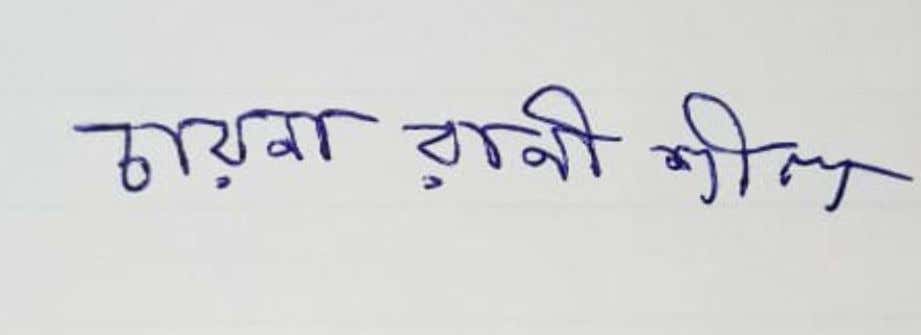 চায়না রানী শীল